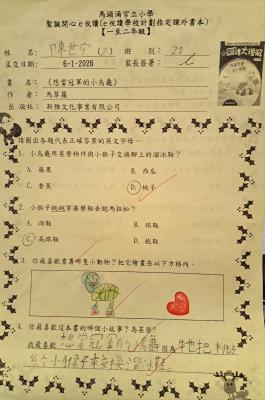 馬頭涌官立小學
聖誕開心e悅讀(e悅讀學校計劃指定課外書本)
【一至二年級】
姓 名: 陳世安(2) 班 別: 2D
呈交日期: 6-1-2026 家長簽署:
書 名: 《想當冠軍的小烏龜》
作 者: 馬翠蘿
出版社: 新雅文化事業有限公司
請圈出各題代表正確答案的英文字母。
1. 小烏龜用甚麼物件與小猴子交換腳上的溜冰鞋?
A. 蘋果 B. 西瓜
C. 香蕉 D. 桃子
2. 小猴子跳跳穿甚麼鞋去跑馬拉松?
A. 雨鞋 B. 球鞋
C. 高跟鞋 D. 拖鞋
3. 你最喜歡書籍哪隻小動物?把它繪畫在以下方格內。
4. 你最喜歡這本書的哪個小故事?為甚麼?
我最喜歡 想當冠軍的小烏龜 因為 牠把桃子
給小猴子來交換溜冰鞋。